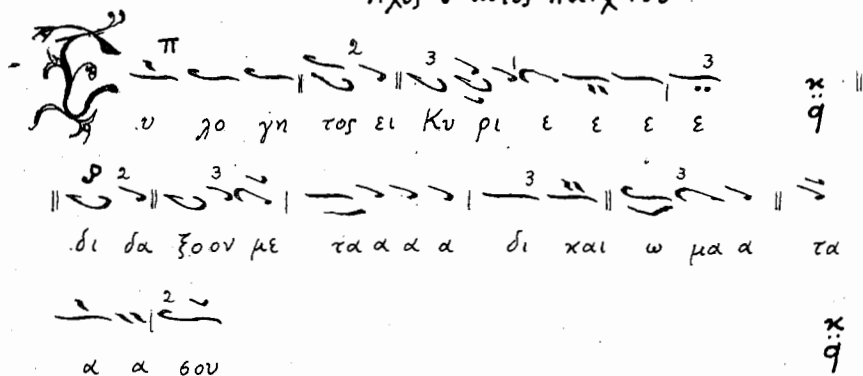 Ηχος ο αυτος
π 2 3 3
Ε υ λο γη τος ει Κυ ρι ε ε ε ε
2 3 3 3
δι δα ξοον με τα α α α δι και ω μα α τα
2
α α σου